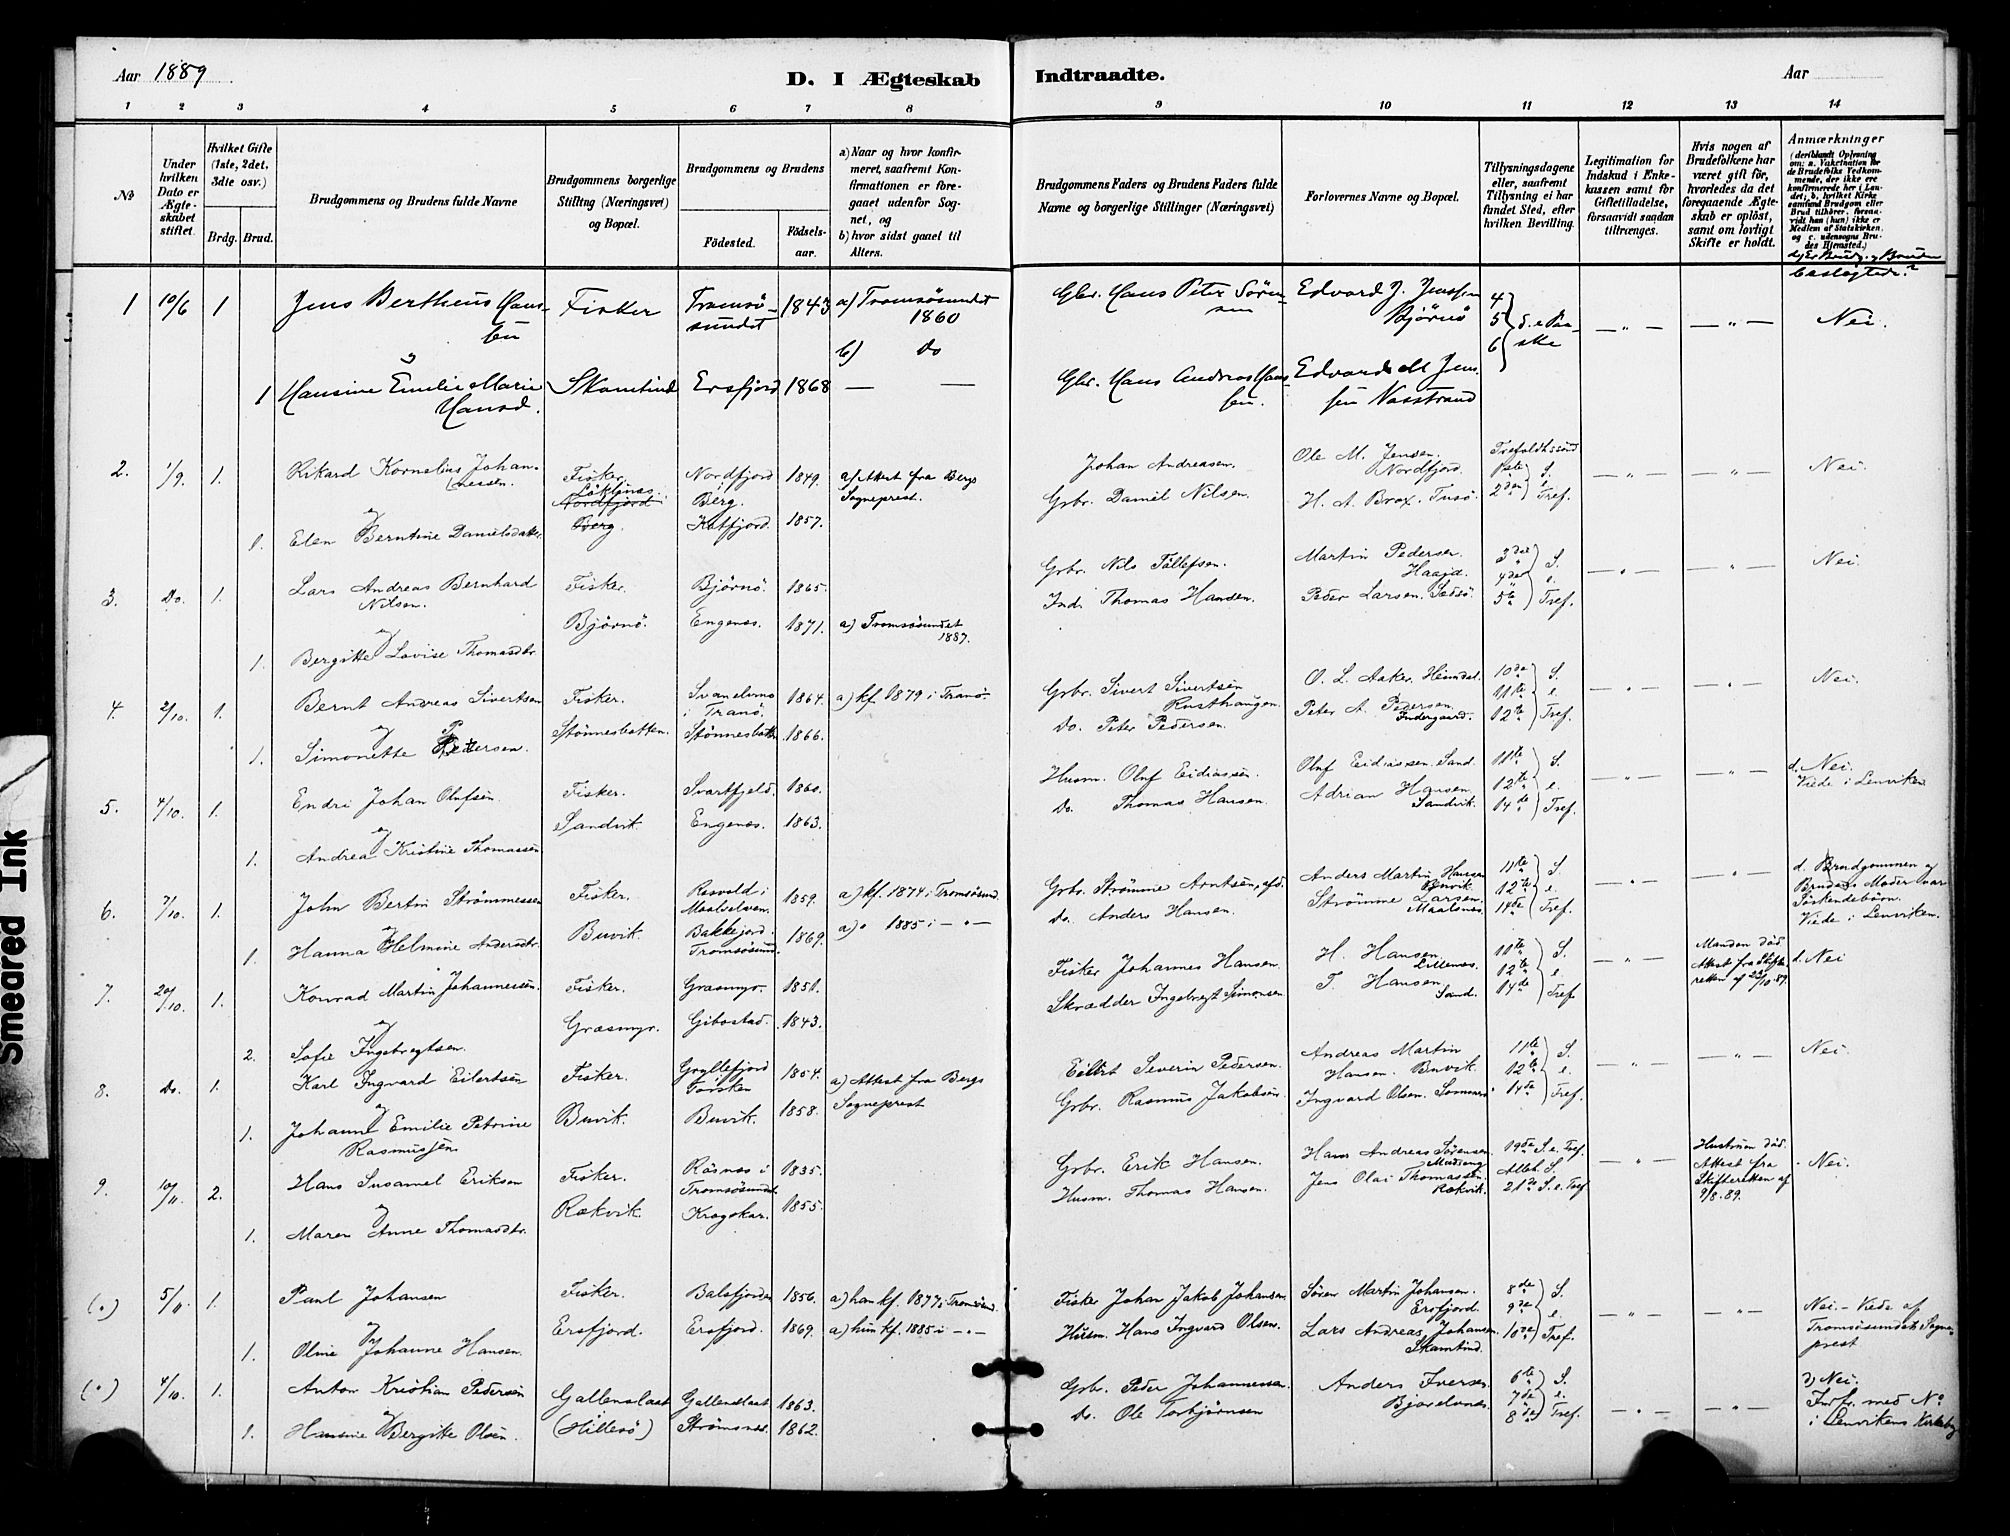 Aar 1889
D. I Ægteskab Indtraadte.
Aar
1 2 3 4 5 6 7 8 9 10 11 12 13 14
No
Under hvilken Dato er Ægteskabet stiftet.
Hvilket Gifte (1ste, 2det, 3die osv.)
Brdg. Brud.
Brudgommens og Brudens fulde Navne
Brudgommens borgerlige Stilling (Næringsvei) og Bopæl.
Brudgommens og Brudens
Födested. Födselsaar.
a) Naar og hvor konfirmeret, saafremt Konfirmationen er foregaaet udenfor Sognet, og
b) hvor sidst gaaet til Alters.
Brudgommens Faders og Brudens Faders fulde Navne og borgerlige Stillinger (Næringsvei)
Forlovernes Navne og Bopæl.
Tillysningsdagene eller, saafremt Tillysning ei har fundet Sted, efter hvilken Bevilling.
Legitimation for Indskud i Enkekassen samt for Giftetilladelse, forsaavidt saadan tiltrænges.
Hvis nogen af Brudefolkene har været gift för, hvorledes da det foregaaende Ægteskab er oplöst, samt om lovligt Skifte er holdt.
Anmærkninger
(deriblandt Oplysning om: a. Vakcination for de Brudefolks Vedkommende, der ikke ere konfirmerede her i Landet; b. hvilket Kirkesamfund Brudgom eller Brud tilhörer, forsaavidt han (hun) ikke er Medlem af Statskirken, og c. udensogns Brudes Hjemsted.)
d) Er Brudg. og Bruden beslægtede?
1 10/6 1 Jens Bertheus Hansen Fisker Tromsösundet 1843 a) Tromsösundet 1860 b) Do Gbr. Hans Peter Sörensen Edvard J. Jenssen Bjørnø 4 5 6 S. e Paaske — " — — " — Nei.
og
1 Hansine Emilie Marie Hansd. Skamtind Ersfjord 1868 — — Gbr. Hans Andreas Hansen. Edvard M Jenssen Vasstrand
2. 1/9. 1. Rikard Kornelius Johannessen. Fisker Löklines. Nordfjord Berg Nordfjord Berg. 1849. a) Attest fra Bergs Sogneprest. Johan Andreasen. Ole M. Jensen. Nordfjord. Trefoldhssönd 1ste 2den S. e. Tref. — " — — " — Nei
og
1. Elen Berntine Danielsdatter Katfjord. 1857. Grbr. Daniel Nilsen. H. A. Brox. Tusö.
3. Do. 1. Lars Andreas Bernhard Nilsen. Fisker. Bjørnö. Bjørnö. 1865. Grbr. Nils Tollefsen. Martin Pedersen. Haaja. 3die 4de 5te S. e. Tref. — " — — " — Nei.
og
1. Bergitte Lovise Thomasdtr. Engenæs. 1871. a) Tromsösundet 1887. Ind. Thomas Hansen. Peder Larsen.
4. 2/10. 1. Bernt Andreas Sivertsen Fisker. Stønnesbotten. Svanelvmo i Tranö. 1864. a) kf. 1879 i Tranö. Grbr. Sivert Sivertsen Rusthaugen. O. L. Aaker. Heimdal. 10de 11te 12te S. e. Tref. — " — — " — Nei.
og
1. Simonette Pedersen. Stønnesbotten 1866. Do. Peter Pedersen. Peter A. Pedersen. Indergaard.
5. 4/10. 1. Endre Johan Olufsen. Fisker. Sandvik. Svartfjeld. 1860. Husm. Oluf Eidiassen. Oluf Eidiassen. Sand. 11te 12te 14de S. e. Tref. — " — — " — d. Nei. Viede i Lenviken
og
1. Andrea Kristine Thomassen Engenæs. 1863. Do. Thomas Hansen. Adrian Hansen. Sandvik.
6. 7/10. 1. John Bertin Strömmessen Fisker. Buvik. Rosvold i Maalselven. 1859. a) kf. 1874 i Tromsösund. Grbr. Strömme Arntsen, afd. Anders Martin Hansen Buvik. 11te 12te 14de S. e. Tref. — " — — " — d. Brudgommen og Brudens Moder var Söskendebörn. Viede i Lenviken.
og
1. Hanna Helmine Andersdtr. Bakkejord. Tromsösund. 1869. a) " 1885 i — " — Do. Anders Hansen. Strömme Larsen. Maalsnes.
7. 20/10. 1. Konrad Martin Johannessen. Fisker. Græsmyr. Græsmyr. 1851. Fisker Johannes Hansen. H. Hansen. Lillenæs. 11te 12te 14de S. e. Tref. — " — Manden död. Attest fra Skifteretten af 22/10 89. d. Nei
og
2. Sofie Ingebregtsen. Gibostad. 1843. Skrædder Ingebregt Simonsen. T. Hansen. Sand.
8. Do. 1. Karl Ingvard Eilertsen Fisker. Buvik. Gryllefjord Torsken 1854. a) Attest fra Bergs Sogneprest Eilert Severin Pedersen. Andreas Martin Hansen. Buvik. 11te 12te 14de S. e. Tref. — " — — " — Nei.
og
1. Johanne Emilie Petrine Rasmussen Buvik. 1858. Grbr. Rasmus Jakobsen. Ingvard Olsen.
9. 10/11. 2. Hans Susamel Eriksen Fisker. Rækvik. Tromsösund. 1835. Grbr. Erik Hansen. Hans Andreas Sörensen 19de S. e. Tref. Alleh. S. 21de S. e. Tref — " — Hustruen död. Attest fra Skifteretten af 9/8. 89. Nei.
og
1. Maren Anne Thomasdtr. 1855. Husm. Thomas Hansen. Jens Olai Thomassen. Rækvik.
(.) 5/11. 1. Paul Johansen Fisker. Ersfjord. Balsfjorden 1856. a) han kf. 1877 i Tromsösund. Fisker Johan Jakob Johansen. Sören Martin Johansen. Ersfjord. 8de 9de 10de S. e. Tref. — " — — " — Nei - Viede af Tromsösundets Sogneprest
og
1. Oline Johanne Hansen. Ersfjord. 1869. a) hun kf. 1885 i — " — Husm. Hans Ingvard Olsen. Lars Andreas Johansen. Skamtind.
(.) 4/10. 1. Anton Kristian Pedersen Gallenslaat (Hillesö) Gallenslaat 1863. Grbr. Peder Johannessen. Anders Iversen. Bjorelvnes. 6te 7de 8de S. e. Tref. — " — — " — d) Nei. Indfr. med No i Lenvikens Kirkebog
og
1. Hansine Bergitte Olsen. Strömsnes. 1862. Do. Ole Torbjörnsen
Smeared Ink